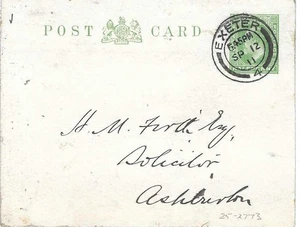 POST CARD
EXETER
5.45PM
SP 12
11
4
H. M. Firth Esq,
Solicitor
Ashburton
25-2773